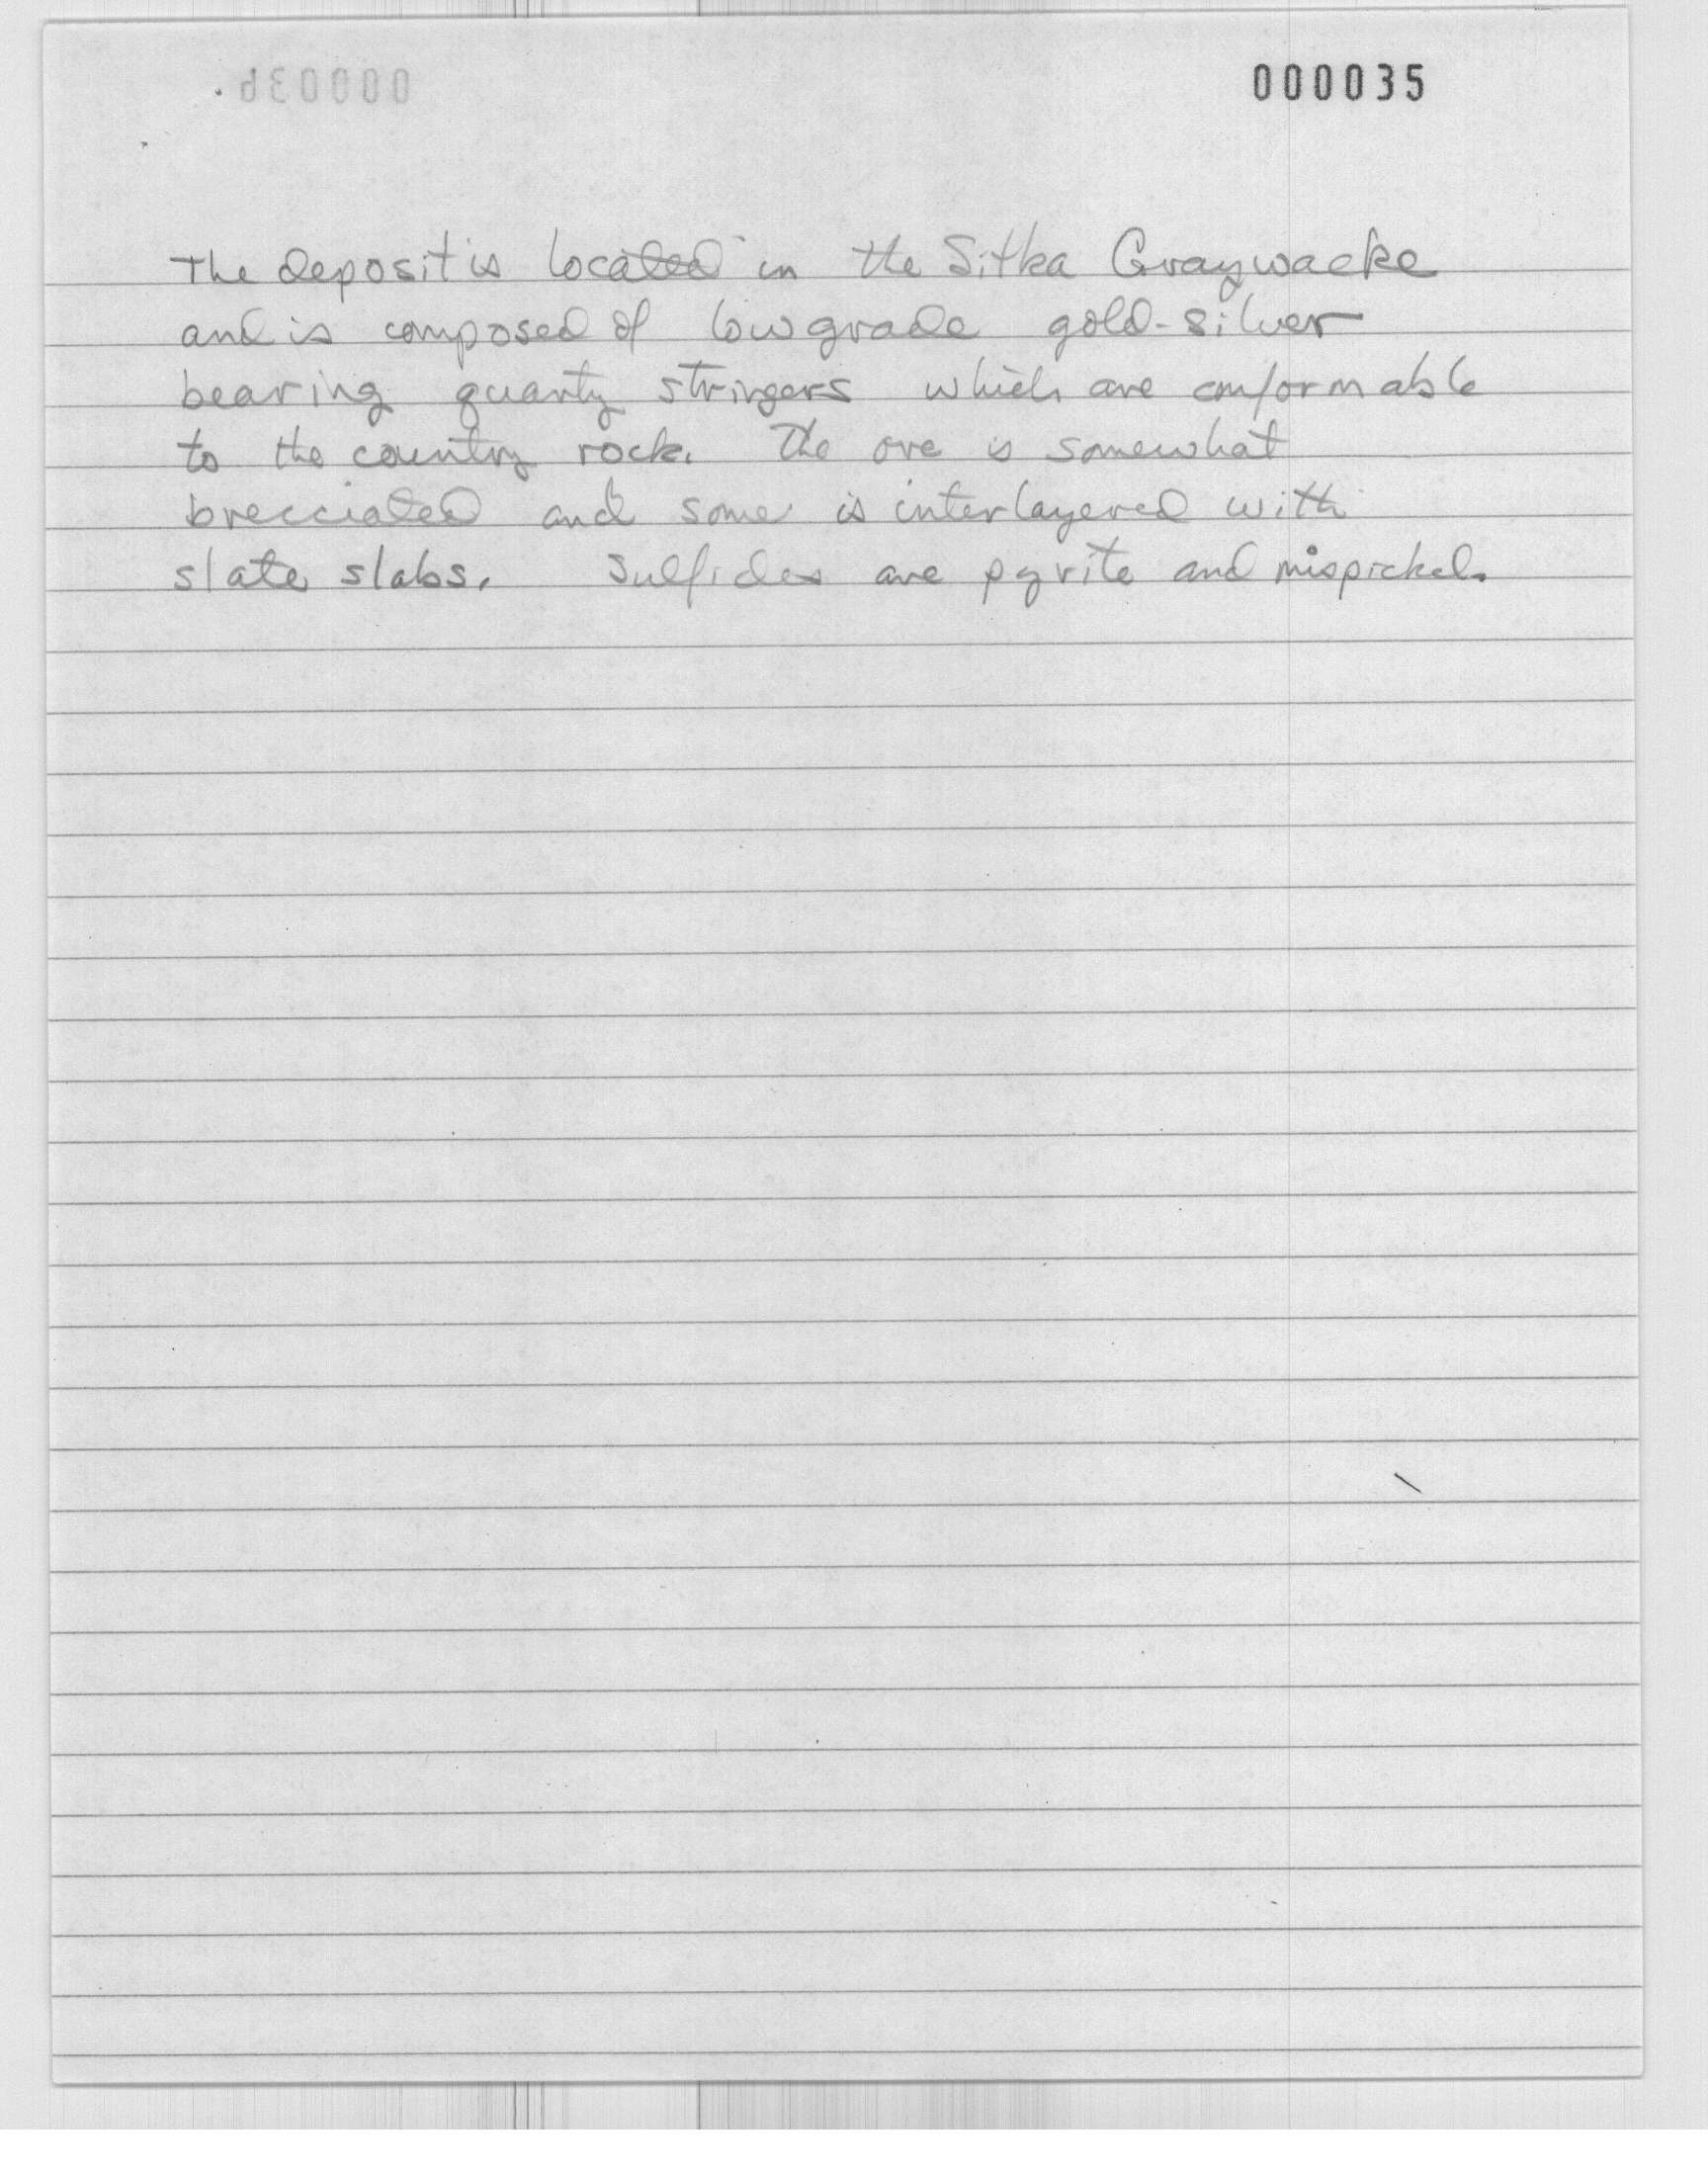 000035
The deposit is located in the Sitka Graywacke
and is composed of low grade gold-silver
bearing quartz stringers which are conformable
to the country rock. The ore is somewhat
brecciated and some is interlayered with
slate slabs. Sulfides are pyrite and mispickel.